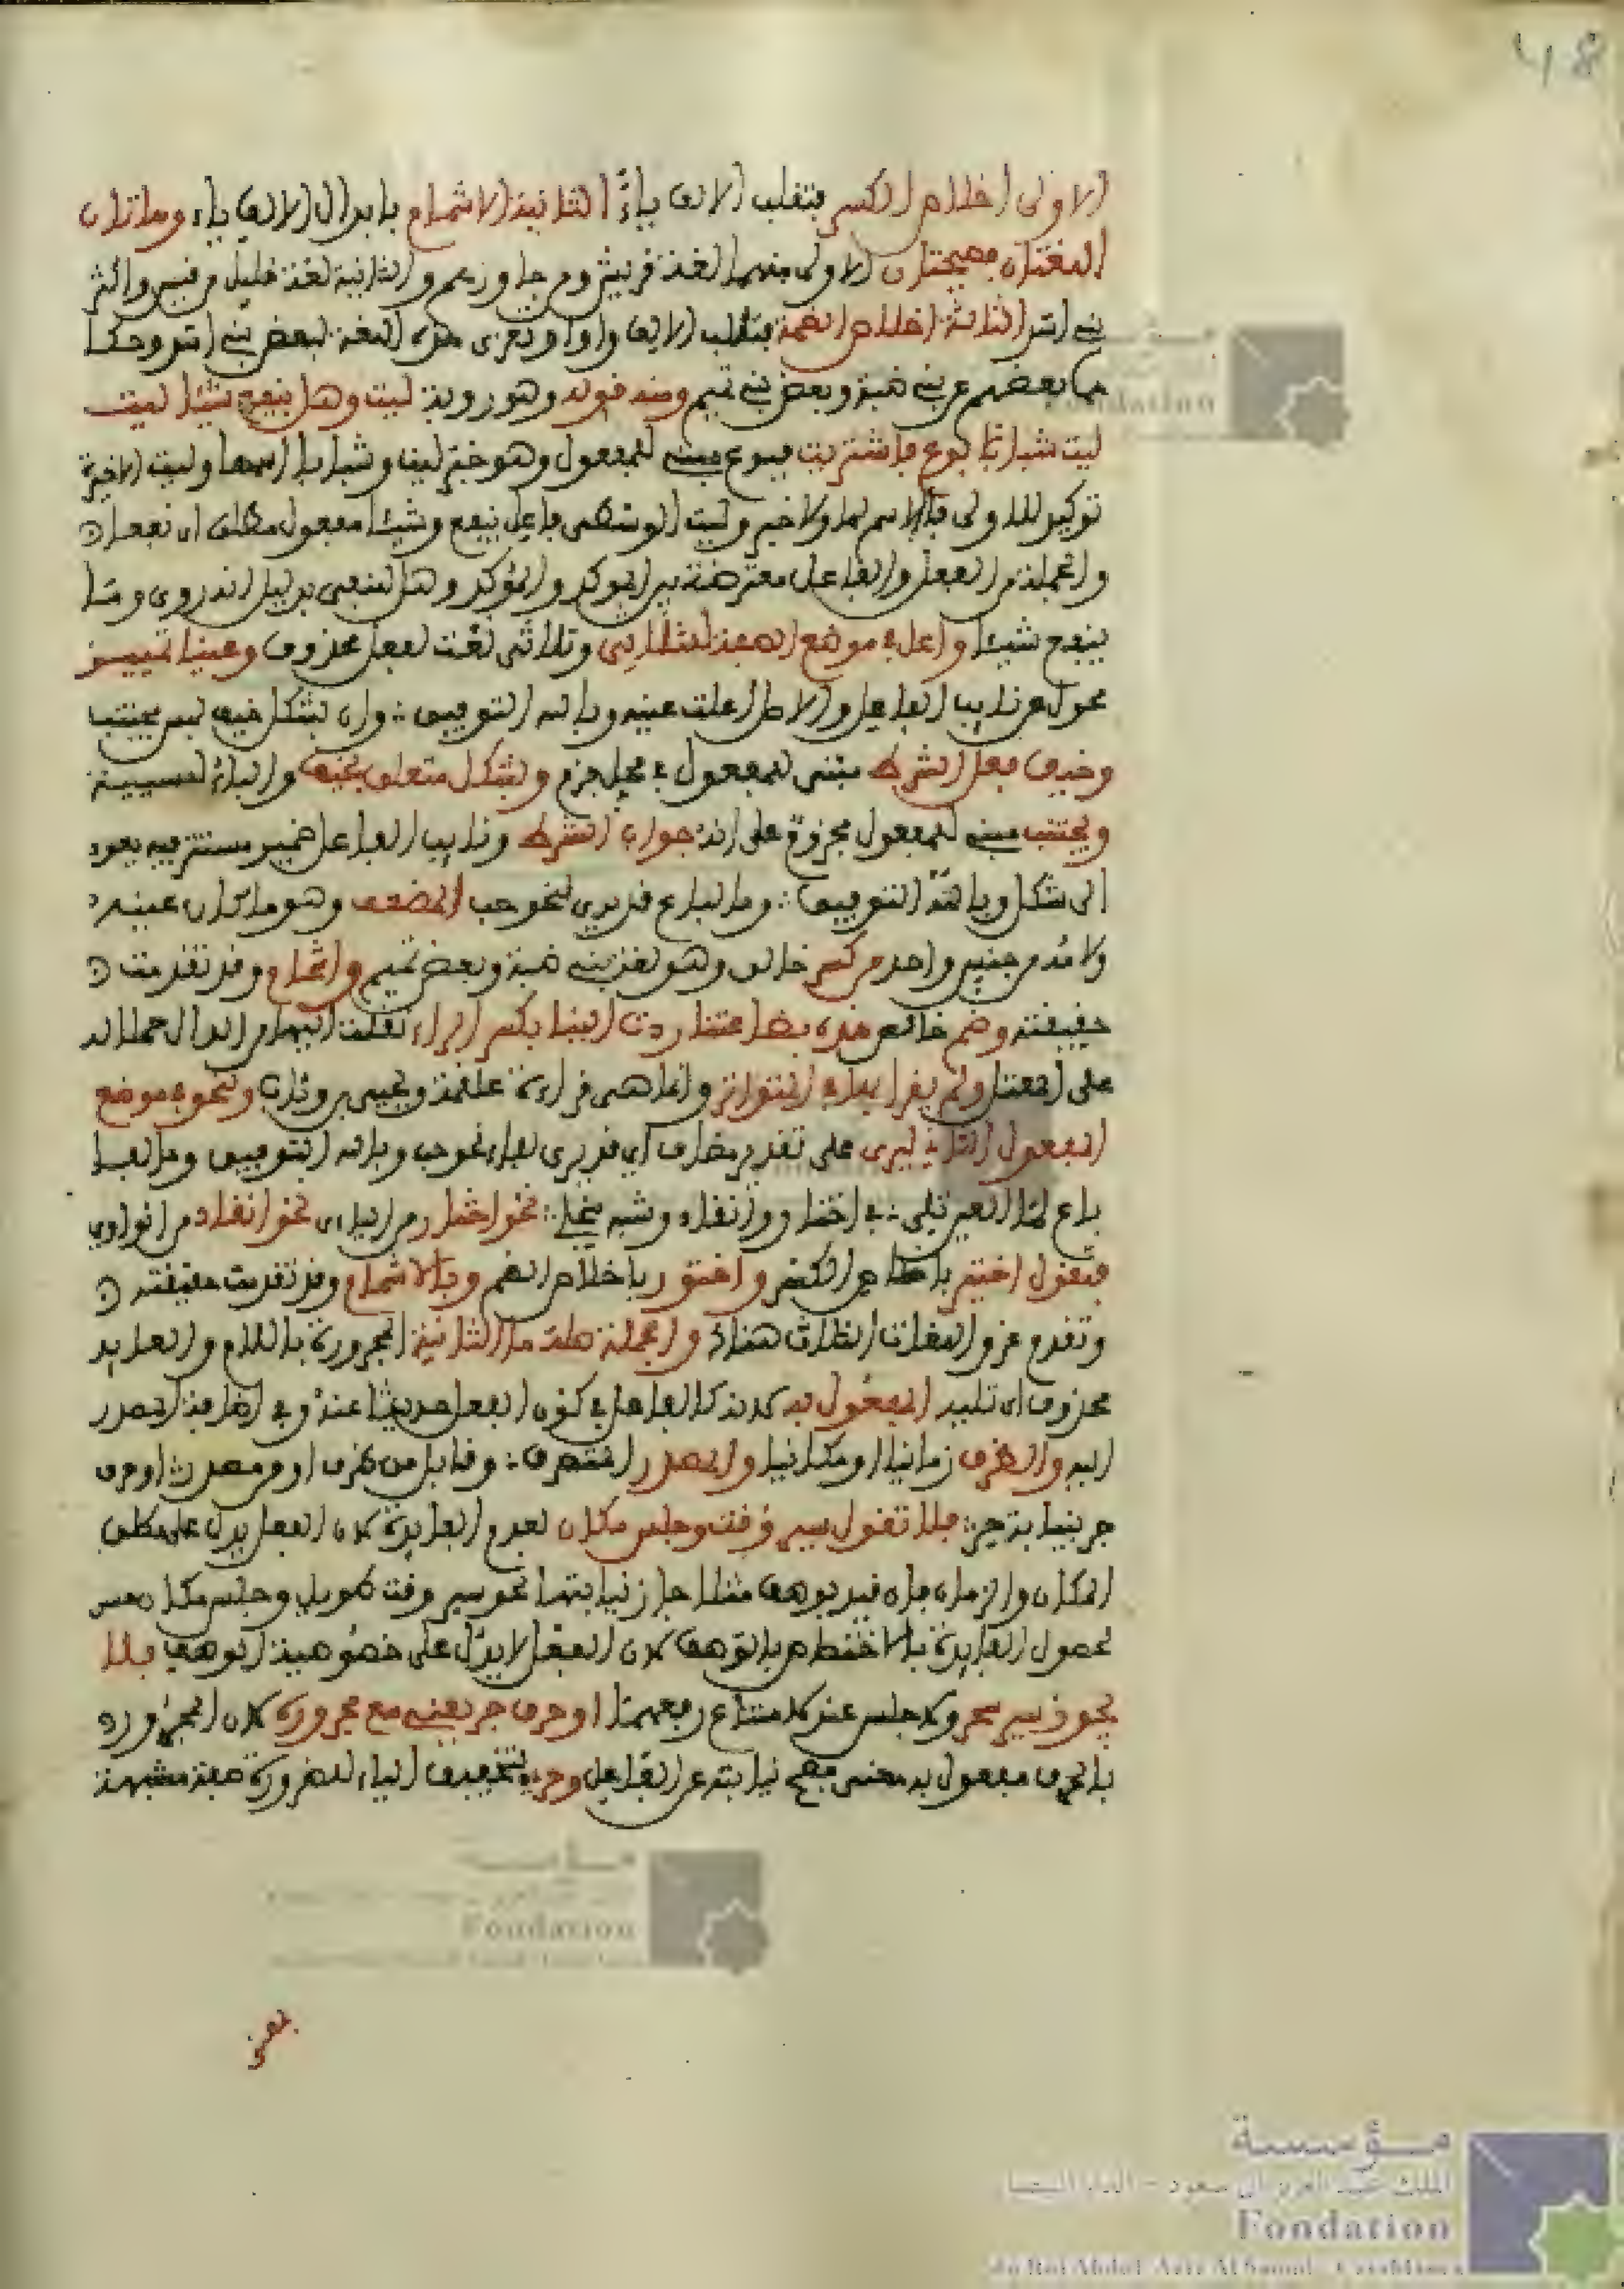 48
الاولى اخلاص الكسر فتقلب الالف ياءً الثانية الاشمام بابدال الالف ياء وهاتان
اللغتان فصيحتان الاولى منهما لغة قريش ومن جاورهم والثانية لغة قليل من قيس واكثر
بني اسد الثالثة اخلاص الضمة فتقلب الالف واوا وتعزى هذه اللغة لبعض بني اسد وحكا
ها بعضهم عن بني ضبة وبعض بني تميم ومنه قوله وهو روبة ليت وهل ينفع شيئا ليت
ليت شبابا بوع فاشتريت فبوع مبني للمفعول وهو خبر ليت وشبابا اسمها وليت الاخيرة
توكيد للاولى فلا اسم لها ولا خبر وليت الوسطى فاعل ينفع وشيئا مفعول مطلق اي نفعا
والجملة من الفعل والفاعل معترضة بين الموكد والمؤكد وهل للنفي بدليل انه روي وما
ينفع شيئا واعل في موضع الصفة لثلاثي وثلاثي نعت لفعل محذوف وعينا تمييز
محول عن نايب الفاعل والاصل اعلت عينه وبالله التوفيق وان بشكل خيف لبس يجتنب
وخيف فعل الشرط مبني للمفعول في محل جزم وبشكل متعلق بخيف والباء للسببية
ويجتنب مبني للمفعول مجزوم على انه جواب الشرط ونايب الفاعل ضمير مستتر فيه يعود
الى شكل وبالله التوفيق وما لباع قد يرى لنحو حب المضعف وهو ما كان عينه
ولامه من جنس واحد من كسر خالص وهو لغة بني ضبة وبعض تميم واشمام وقد تقدمت
حقيقته وضم خالص هذه بضاعتنا ردت الينا بكسر الراء نقلت اليها من الدال حملا له
على المعتل ولم يقرا بها في المتواتر وانما هي قراءة علقمة ويحيى بن وثاب ولنحو في موضع
المفعول الثاني ليرى على تقدير مضاف اي قد يرى لفاء نحو حب وبالله التوفيق وما لفا
باع لما العين تلي في اختار وانقاد وشبه ينجلي نحو اختار من الياء نحو انقاد من الواوي
فتقول اختير باخلاص الكسر واختور باخلاص الضم وبالاشمام وقد تقدمت حقيقته
وتقدم عزو اللغات الثلاث هناك والجملة صلة ما الثانية المجرورة باللام والعايد
محذوف اي تليه المفعول به لانه كالفاعل في كون الفعل حديثا عنه وفي اضافة المصدر
اليه والظرف زمانيا او مكانيا والمصدر المتصرف وقابل من ظرف او من مصدر او حرف
جر بنيابة حر فلا تقول سير وقت وجلس مكان لعدم الفايدة لان الفعل يدل على مطلق
المكان والزمان فان قيد بوصف مثلا جاز نيابتهما نحو سير وقت طويل وجلس مكان حسن
لحصول الفايدة بالاختصاص بالوصف لان الفعل لا يدل على خصوصية الوصف فلا
يجوز سير سحر ولا جلس عند لامتناع رفعهما او حرف جر يعني مع مجروره لان المجرور
بالحرف مفعول به معنى فصح نيابته عن الفاعل وحري بتخفيف الياء للضرورة صفة مشبهة
يعني
مؤسسة
الملك عبد العزيز آل سعود - الدار البيضاء
Fondation
du Roi Abdul Aziz Al Saoud - Casablanca